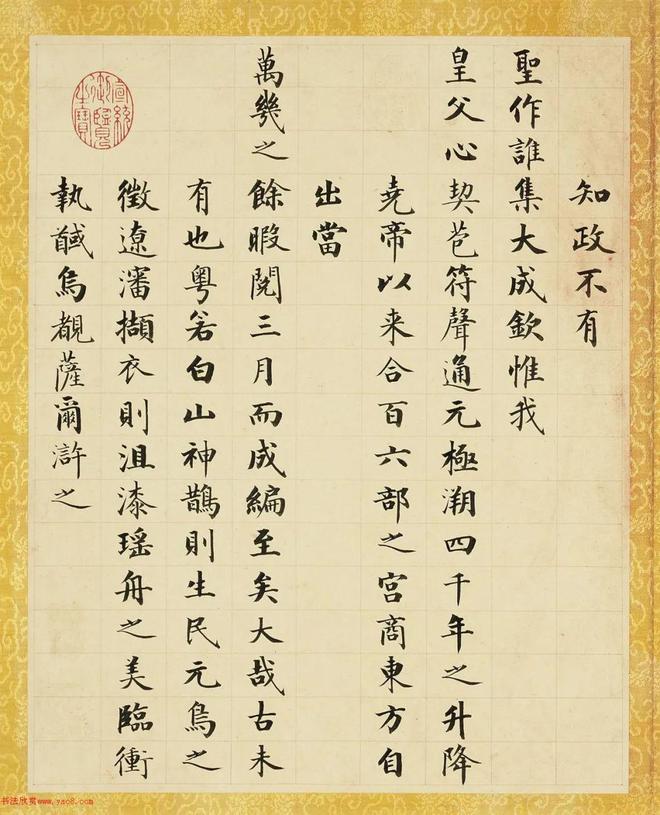 知政不有
聖作誰集大成欽惟我
皇父心契苞符聲通元極溯四千年之升降
堯帝以来合百六部之宮商東方自
出當
萬幾之餘暇閱三月而成編至矣大哉古未
有也粵若白山神鵲則生民元鳥之
徵遼瀋擷衣則沮漆瑤舟之美臨衝
執馘烏覩薩爾滸之
宣統御覽之寶
书法欣赏www.yac8.com